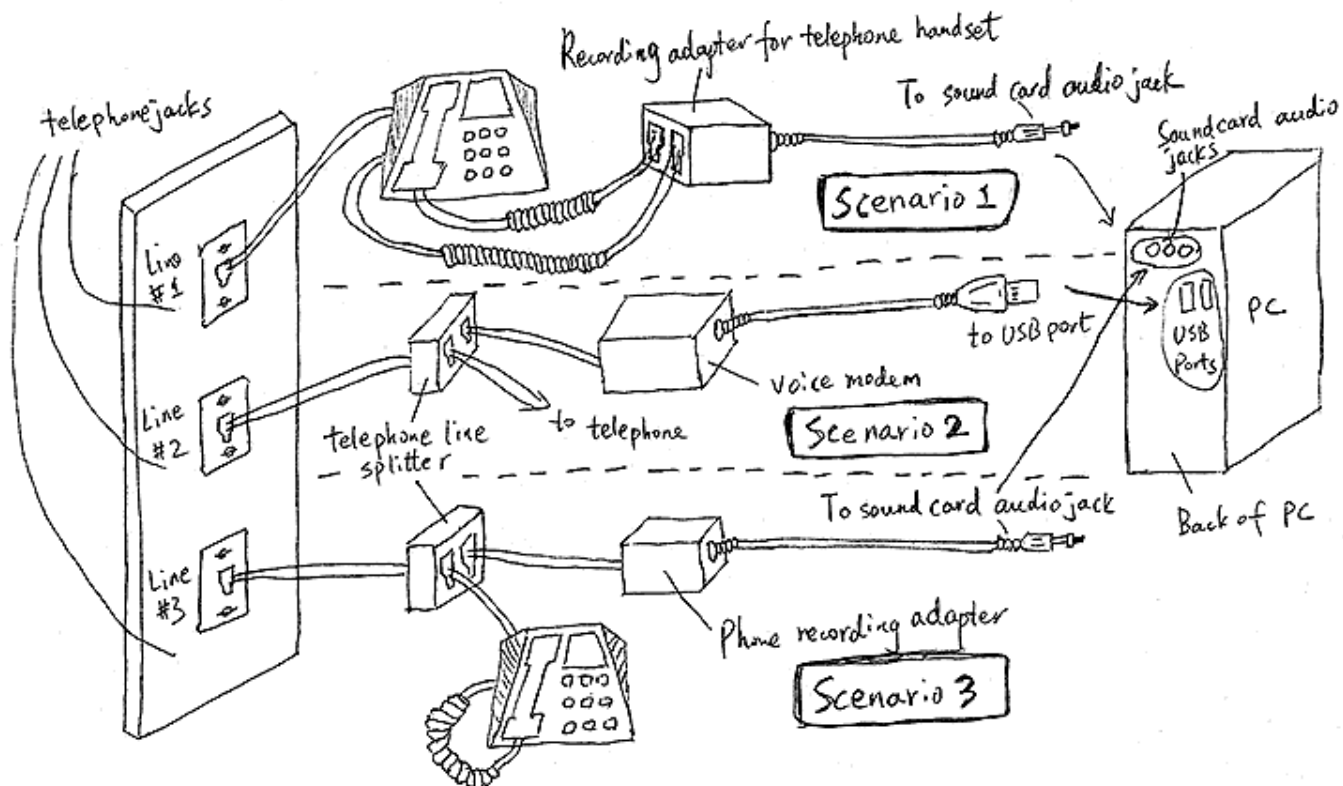 Recording adapter for telephone handset
To sound card audio jack
Soundcard audio
jacks
telephone jacks
Scenario 1
Line
#1
to USB port
PC
USB
Ports
voice modem
Line
#2
telephone line
splitter
to telephone
Scenario 2
To sound card audio jack
Back of PC
Line
#3
Phone recording adapter
Scenario 3